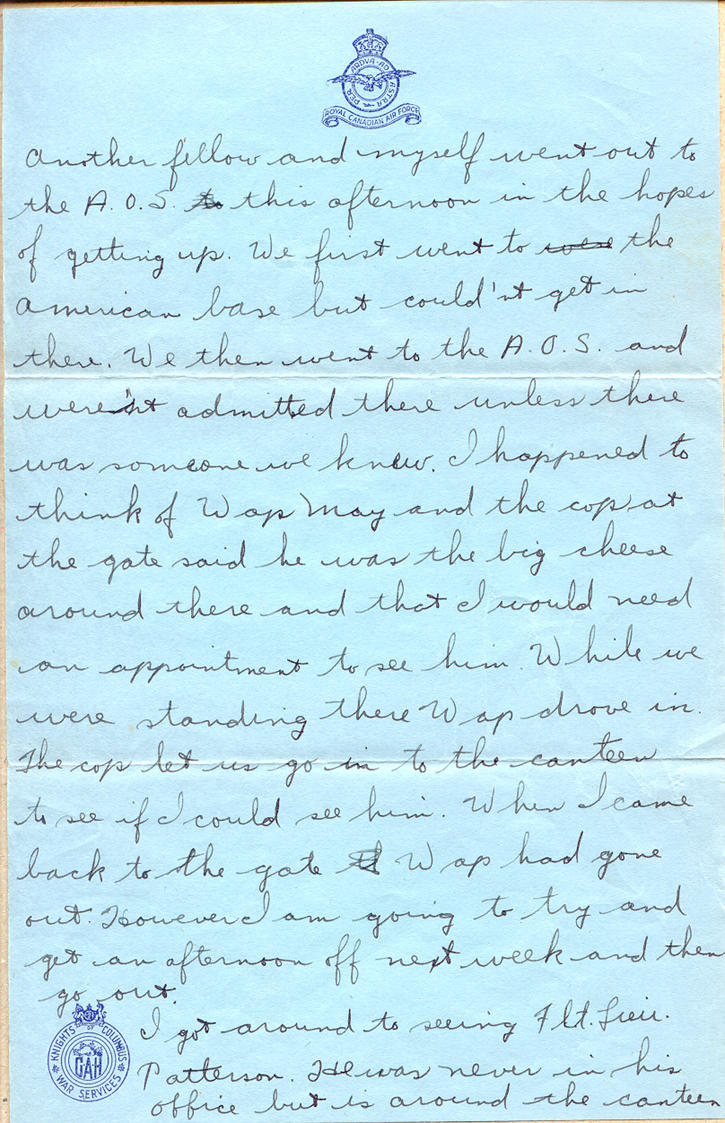 PER ARDVA AD ASTRA
ROYAL CANADIAN AIR FORCE
Another fellow and myself went out to
the A.O.S. to this afternoon in the hopes
of getting up. We first went to were the
American base but could'nt get in
there. We then went to the A.O.S. and
were'nt admitted there unless there
was someone we knew. I happened to
think of Wap May and the cop at
the gate said he was the big cheese
around there and that I would need
an appointment to see him. While we
were standing there Wap drove in.
The cop let us go in to the canteen
to see if I could see him. When I came
back to the gate Wap had gone
out. However I am going to try and
get an afternoon off next week and then
go out.
I got around to seeing Flt. Lieu.
Patterson. He was never in his
office but is around the canteen
KNIGHTS OF COLUMBUS
WAR SERVICES
CAH